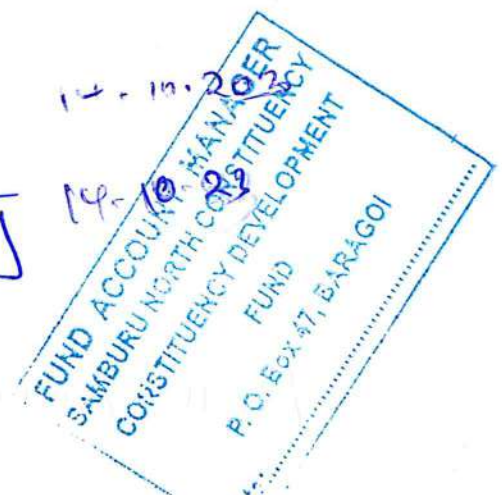 14.10.23
FUND ACCOUNT MANAGER
SAMBURU NORTH CONSTITUENCY
CONSTITUENCY DEVELOPMENT
FUND
P. O. Box 47, BARAGOI